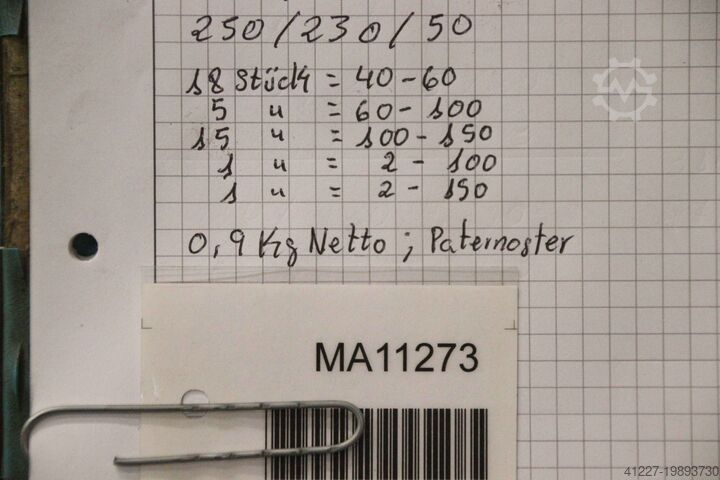 250/230/50
18 Stück = 40-60
5 " = 60-100
15 " = 100-150
1 " = 2-100
1 " = 2-150
0,9 Kg Netto ; Paternoster
MA11273
41227-19893730